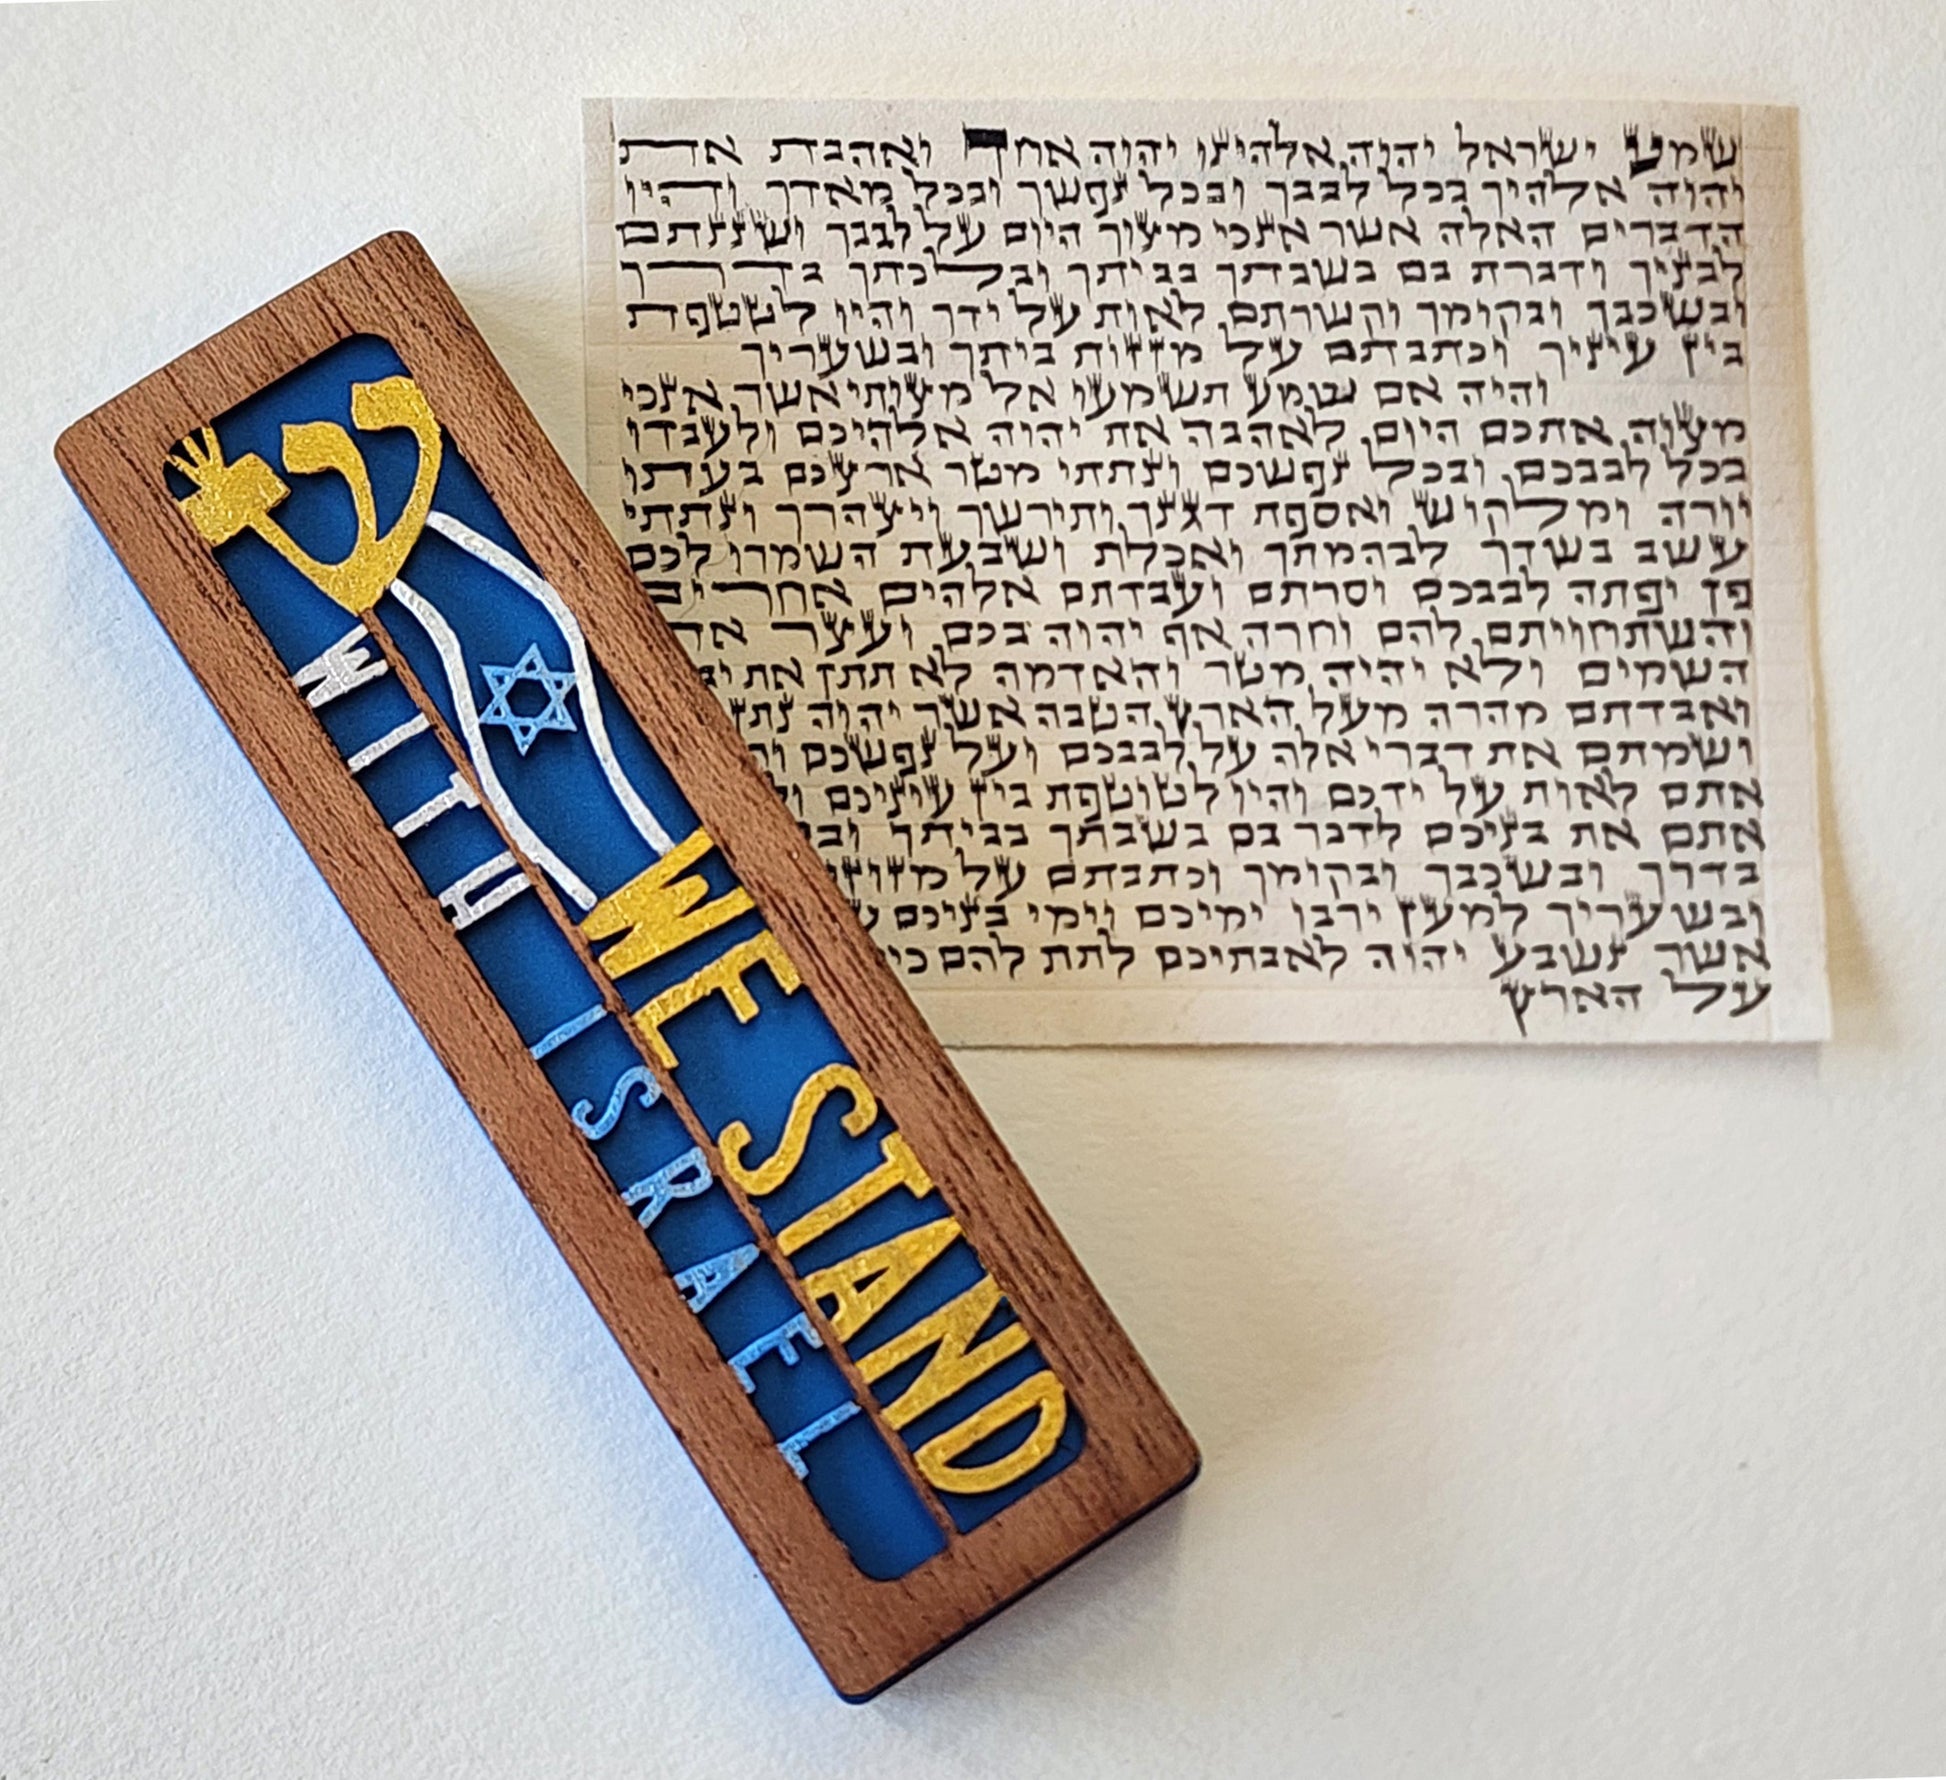 שמע ישראל יהוה אלהינו יהוה אחד ואהבת את
יהוה אלהיך בכל לבבך ובכל נפשך ובכל מאדך והיו
הדברים האלה אשר אנכי מצוך היום על לבבך ושננתם
לבניך ודברת בם בשבתך בביתך ובלכתך בדרך
ובשכבך ובקומך וקשרתם לאות על ידך והיו לטטפת
בין עיניך וכתבתם על מזזות ביתך ובשעריך
והיה אם שמע תשמעו אל מצותי אשר אנכי
מצוה אתכם היום לאהבה את יהוה אלהיכם ולעבדו
בכל לבבכם ובכל נפשכם ונתתי מטר ארצכם בעתו
יורה ומלקוש ואספת דגנך ותירשך ויצהרך ונתתי
עשב בשדך לבהמתך ואכלת ושבעת השמרו לכם
פן יפתה לבבכם וסרתם ועבדתם אלהים אחרים
והשתחויתם להם וחרה אף יהוה בכם ועצר את
השמים ולא יהיה מטר והאדמה לא תתן את
ואבדתם מהרה מעל הארץ הטבה אשר יהוה נתן
ושמתם את דברי אלה על לבבכם ועל נפשכם
אתם לאות על ידכם והיו לטוטפת בין עיניכם
אתם את בניכם לדבר בם בשבתך בביתך
בדרך ובשכבך ובקומך וכתבתם על
ובשעריך למען ירבו ימיכם וימי בניכם
אשר נשבע יהוה לאבתיכם לתת להם
על הארץ
ש
WE STAND
WITH ISRAEL